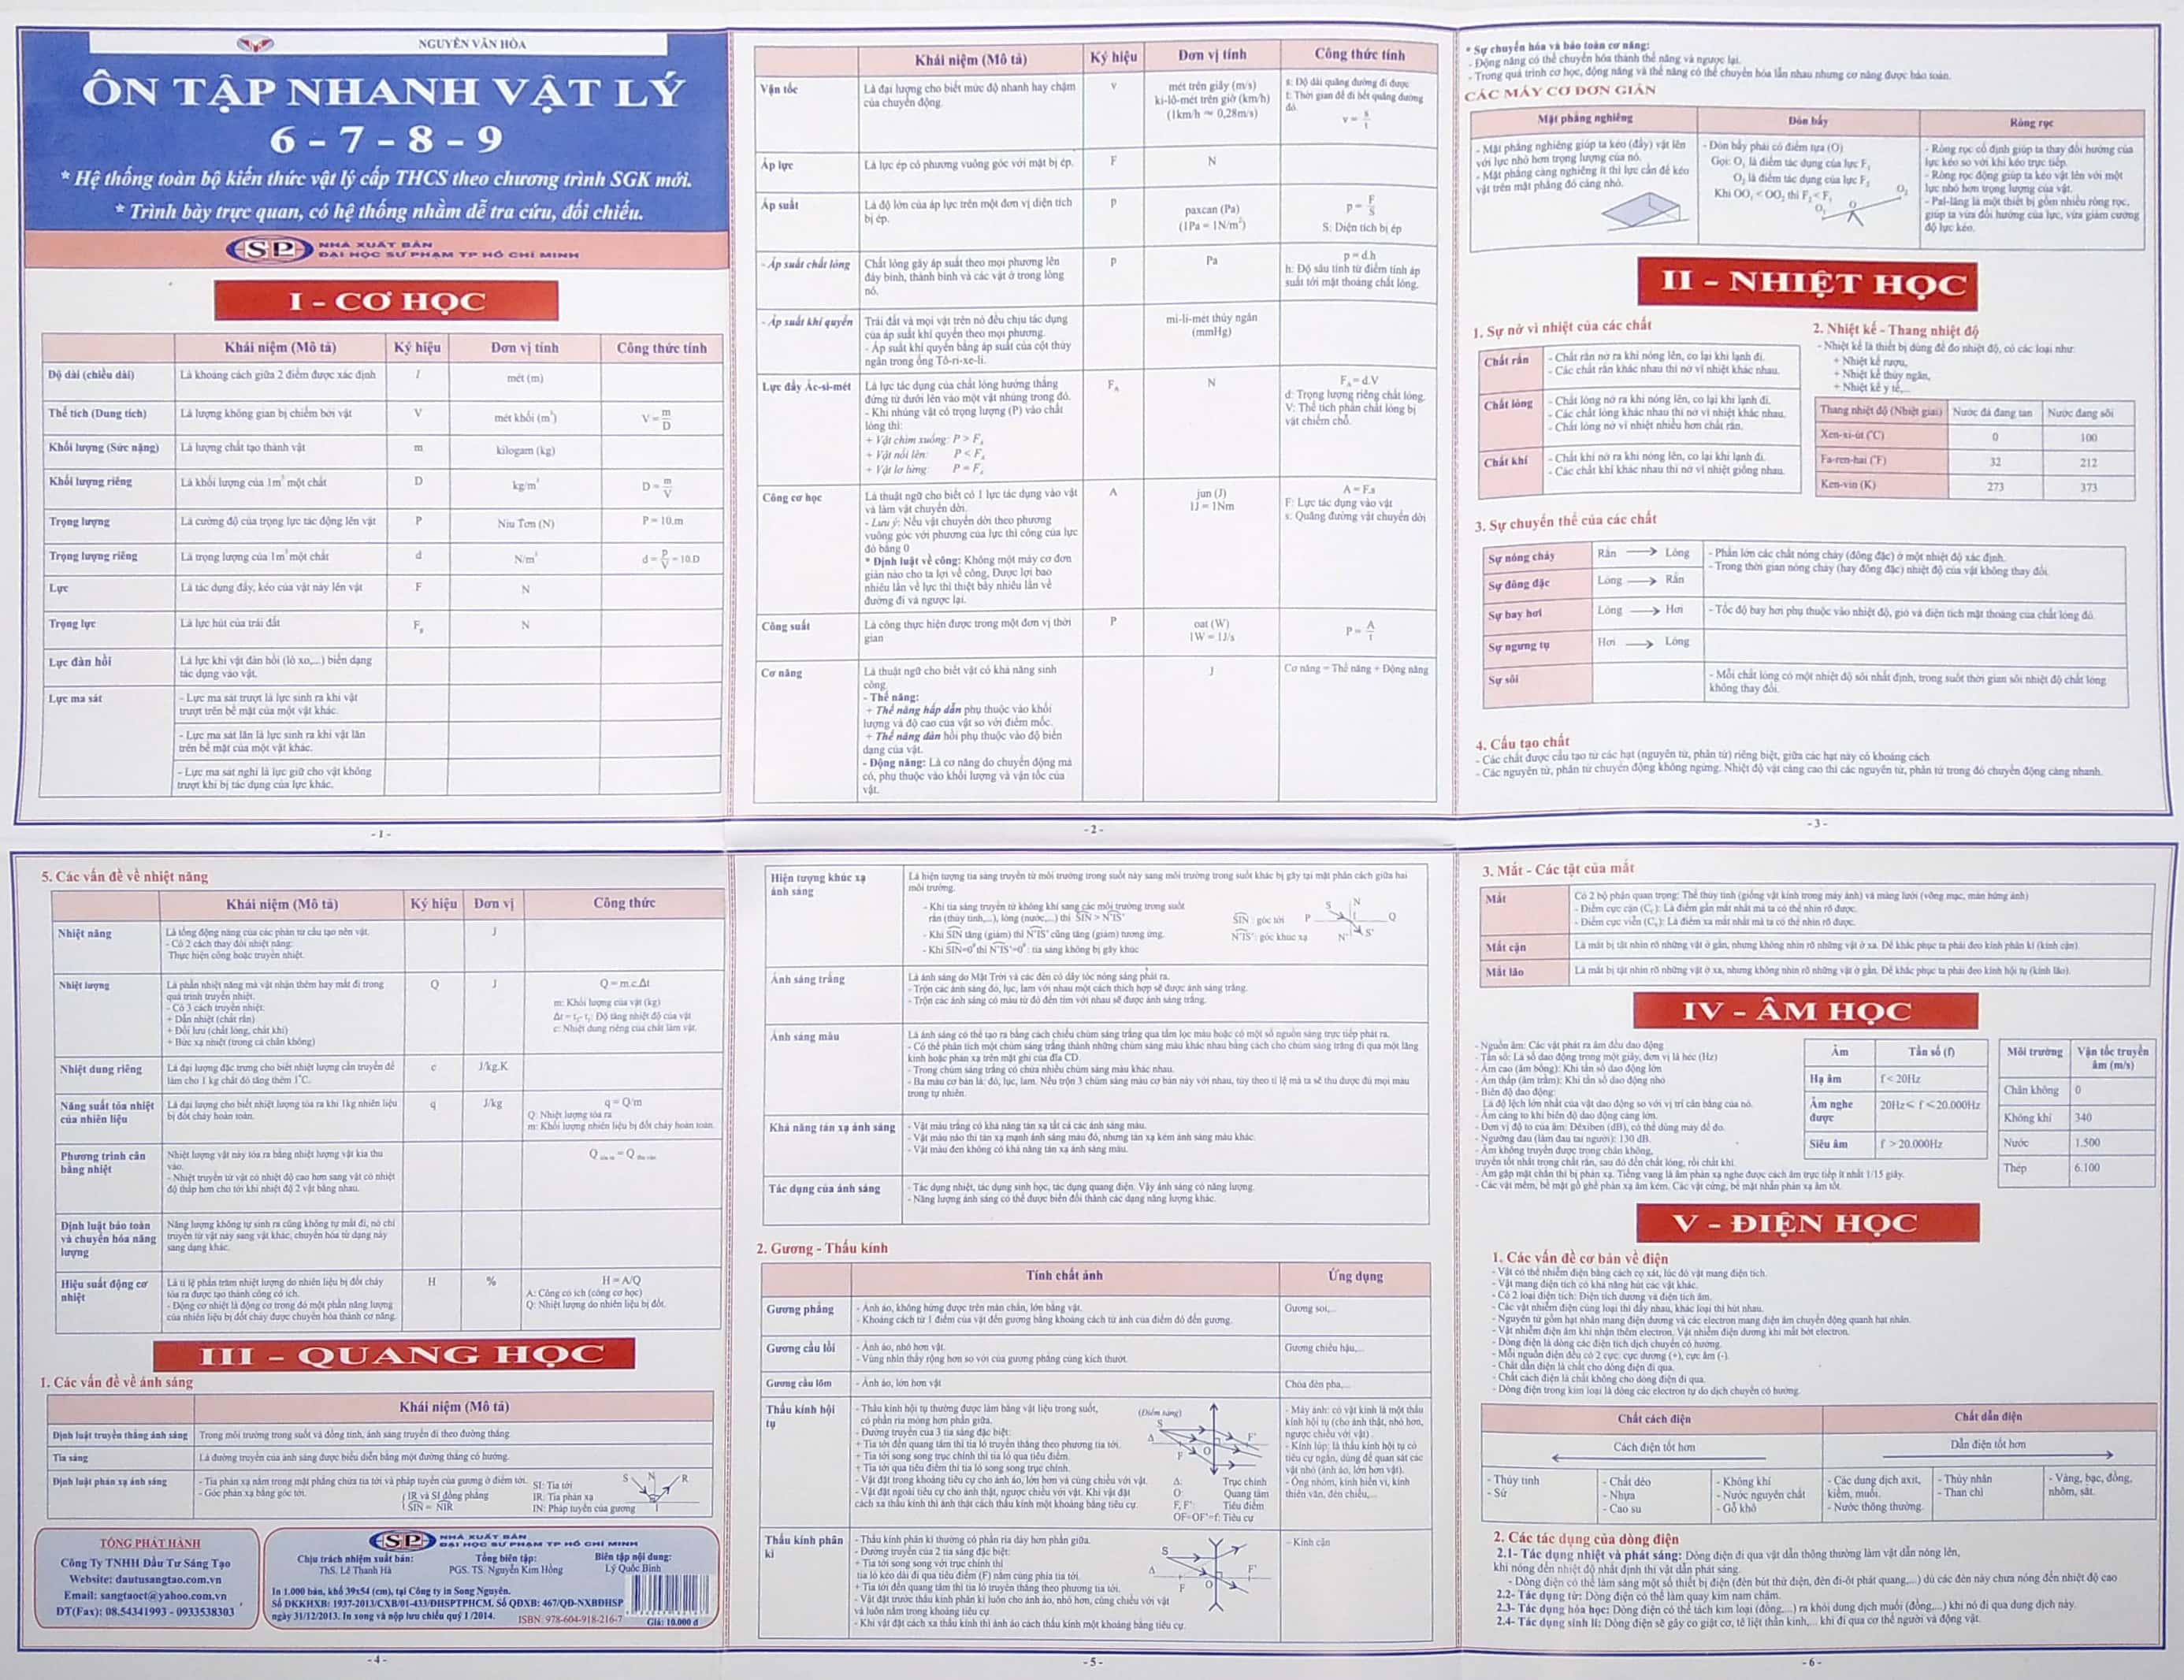 NGUYỄN VĂN HÒA
ÔN TẬP NHANH VẬT LÝ
6 - 7 - 8 - 9
* Hệ thống toàn bộ kiến thức vật lý cấp THCS theo chương trình SGK mới.
* Trình bày trực quan, có hệ thống nhằm dễ tra cứu, đối chiếu.
SP NHÀ XUẤT BẢN
ĐẠI HỌC SƯ PHẠM TP HỒ CHÍ MINH
I - CƠ HỌC
Khái niệm (Mô tả) Ký hiệu Đơn vị tính Công thức tính
Độ dài (chiều dài) Là khoảng cách giữa 2 điểm được xác định l mét (m)
Thể tích (Dung tích) Là lượng không gian bị chiếm bởi vật V mét khối (m³) V = m/D
Khối lượng (Sức nặng) Là lượng chất tạo thành vật m kilogam (kg)
Khối lượng riêng Là khối lượng của 1m³ một chất D kg/m³ D = m/V
Trọng lượng Là cường độ của trọng lực tác động lên vật P Niu Tơn (N) P = 10.m
Trọng lượng riêng Là trọng lượng của 1m³ một chất d N/m³ d = P/V = 10.D
Lực Là tác dụng đẩy, kéo của vật này lên vật F N
Trọng lực Là lực hút của trái đất Fg N
Lực đàn hồi Là lực khi vật đàn hồi (lò xo,...) biến dạng
tác dụng vào vật.
Lực ma sát - Lực ma sát trượt là lực sinh ra khi vật
trượt trên bề mặt của một vật khác.
- Lực ma sát lăn là lực sinh ra khi vật lăn
trên bề mặt của một vật khác.
- Lực ma sát nghỉ là lực giữ cho vật không
trượt khi bị tác dụng của lực khác.
- 1 -
Khái niệm (Mô tả) Ký hiệu Đơn vị tính Công thức tính
Vận tốc Là đại lượng cho biết mức độ nhanh hay chậm
của chuyển động.
v
mét trên giây (m/s)
ki-lô-mét trên giờ (km/h)
(1km/h ≈ 0,28m/s)
s: Độ dài quãng đường đi được
t: Thời gian để đi hết quãng đường
đó.
v = s/t
Áp lực Là lực ép có phương vuông góc với mặt bị ép. F N
Áp suất Là độ lớn của áp lực trên một đơn vị diện tích
bị ép.
p
paxcan (Pa)
(1Pa = 1N/m²)
p = F/S
S: Diện tích bị ép
- Áp suất chất lỏng Chất lỏng gây áp suất theo mọi phương lên
đáy bình, thành bình và các vật ở trong lòng
nó.
p Pa
p = d.h
h: Độ sâu tính từ điểm tính áp
suất tới mặt thoáng chất lỏng.
- Áp suất khí quyển Trái đất và mọi vật trên nó đều chịu tác dụng
của áp suất khí quyển theo mọi phương.
- Áp suất khí quyển bằng áp suất của cột thủy
ngân trong ống Tô-ri-xe-li.
mi-li-mét thủy ngân
(mmHg)
Lực đẩy Ác-si-mét Là lực tác dụng của chất lỏng hướng thẳng
đứng từ dưới lên vào một vật nhúng trong đó.
- Khi nhúng vật có trọng lượng (P) vào chất
lỏng thì:
+ Vật chìm xuống: P > FA
+ Vật nổi lên: P < FA
+ Vật lơ lửng: P = FA
FA N
FA = d.V
d: Trọng lượng riêng chất lỏng.
V: Thể tích phần chất lỏng bị
vật chiếm chỗ.
Công cơ học Là thuật ngữ cho biết có 1 lực tác dụng vào vật
và làm vật chuyển dời.
- Lưu ý: Nếu vật chuyển dời theo phương
vuông góc với phương của lực thì công của lực
đó bằng 0
* Định luật về công: Không một máy cơ đơn
giản nào cho ta lợi về công. Được lợi bao
nhiêu lần về lực thì thiệt bấy nhiêu lần về
đường đi và ngược lại.
A
jun (J)
1J = 1Nm
A = F.s
F: Lực tác dụng vào vật
s: Quãng đường vật chuyển dời
Công suất Là công thực hiện được trong một đơn vị thời
gian
P
oat (W)
1W = 1J/s
P = A/t
Cơ năng Là thuật ngữ cho biết vật có khả năng sinh
công.
- Thế năng:
+ Thế năng hấp dẫn phụ thuộc vào khối
lượng và độ cao của vật so với điểm mốc.
+ Thế năng đàn hồi phụ thuộc vào độ biến
dạng của vật.
- Động năng: Là cơ năng do chuyển động mà
có, phụ thuộc vào khối lượng và vận tốc của
vật.
J
Cơ năng = Thế năng + Động năng
- 2 -
* Sự chuyển hóa và bảo toàn cơ năng:
- Động năng có thể chuyển hóa thành thế năng và ngược lại.
- Trong quá trình cơ học, động năng và thế năng có thể chuyển hóa lẫn nhau nhưng cơ năng được bảo toàn.
CÁC MÁY CƠ ĐƠN GIẢN
Mặt phẳng nghiêng Đòn bẩy Ròng rọc
- Mặt phẳng nghiêng giúp ta kéo (đẩy) vật lên
với lực nhỏ hơn trọng lượng của nó.
- Mặt phẳng càng nghiêng ít thì lực cần để kéo
vật trên mặt phẳng đó càng nhỏ.
- Đòn bẩy phải có điểm tựa (O)
Gọi: O₁ là điểm tác dụng của lực F₁
O₂ là điểm tác dụng của lực F₂
Khi OO₁ < OO₂ thì F₂ < F₁
O₁ O O₂
- Ròng rọc cố định giúp ta thay đổi hướng của
lực kéo so với khi kéo trực tiếp.
- Ròng rọc động giúp ta kéo vật lên với một
lực nhỏ hơn trọng lượng của vật.
- Pal-lăng là một thiết bị gồm nhiều ròng rọc,
giúp ta vừa đổi hướng của lực, vừa giảm cường
độ lực kéo.
II - NHIỆT HỌC
1. Sự nở vì nhiệt của các chất
Chất rắn - Chất rắn nở ra khi nóng lên, co lại khi lạnh đi.
- Các chất rắn khác nhau thì nở vì nhiệt khác nhau.
Chất lỏng - Chất lỏng nở ra khi nóng lên, co lại khi lạnh đi.
- Các chất lỏng khác nhau thì nở vì nhiệt khác nhau.
- Chất lỏng nở vì nhiệt nhiều hơn chất rắn.
Chất khí - Chất khí nở ra khi nóng lên, co lại khi lạnh đi.
- Các chất khí khác nhau thì nở vì nhiệt giống nhau.
2. Nhiệt kế - Thang nhiệt độ
- Nhiệt kế là thiết bị dùng để đo nhiệt độ, có các loại như:
+ Nhiệt kế rượu,
+ Nhiệt kế thủy ngân,
+ Nhiệt kế y tế,...
Thang nhiệt độ (Nhiệt giai) Nước đá đang tan Nước đang sôi
Xen-xi-út (°C) 0 100
Fa-ren-hai (°F) 32 212
Ken-vin (K) 273 373
3. Sự chuyển thể của các chất
Sự nóng chảy Rắn → Lỏng - Phần lớn các chất nóng chảy (đông đặc) ở một nhiệt độ xác định.
- Trong thời gian nóng chảy (hay đông đặc) nhiệt độ của vật không thay đổi.
Sự đông đặc Lỏng → Rắn
Sự bay hơi Lỏng → Hơi - Tốc độ bay hơi phụ thuộc vào nhiệt độ, gió và diện tích mặt thoáng của chất lỏng đó.
Sự ngưng tụ Hơi → Lỏng
Sự sôi - Mỗi chất lỏng có một nhiệt độ sôi nhất định, trong suốt thời gian sôi nhiệt độ chất lỏng
không thay đổi.
4. Cấu tạo chất
- Các chất được cấu tạo từ các hạt (nguyên tử, phân tử) riêng biệt, giữa các hạt này có khoảng cách
- Các nguyên tử, phân tử chuyển động không ngừng. Nhiệt độ vật càng cao thì các nguyên tử, phân tử trong đó chuyển động càng nhanh.
- 3 -
5. Các vấn đề về nhiệt năng
Khái niệm (Mô tả) Ký hiệu Đơn vị Công thức
Nhiệt năng Là tổng động năng của các phân tử cấu tạo nên vật.
- Có 2 cách thay đổi nhiệt năng:
Thực hiện công hoặc truyền nhiệt.
J
Nhiệt lượng Là phần nhiệt năng mà vật nhận thêm hay mất đi trong
quá trình truyền nhiệt.
- Có 3 cách truyền nhiệt:
+ Dẫn nhiệt (chất rắn)
+ Đối lưu (chất lỏng, chất khí)
+ Bức xạ nhiệt (trong cả chân không)
Q J
Q = m.c.Δt
m: Khối lượng của vật (kg)
Δt = t₂- t₁: Độ tăng nhiệt độ của vật
c: Nhiệt dung riêng của chất làm vật.
Nhiệt dung riêng Là đại lượng đặc trưng cho biết nhiệt lượng cần truyền để
làm cho 1 kg chất đó tăng thêm 1°C.
c J/kg.K
Năng suất tỏa nhiệt
của nhiên liệu
Là đại lượng cho biết nhiệt lượng tỏa ra khi 1kg nhiên liệu
bị đốt cháy hoàn toàn.
q J/kg
q = Q/m
Q: Nhiệt lượng tỏa ra
m: Khối lượng nhiên liệu bị đốt cháy hoàn toàn.
Phương trình cân
bằng nhiệt
Nhiệt lượng vật này tỏa ra bằng nhiệt lượng vật kia thu
vào.
- Nhiệt truyền từ vật có nhiệt độ cao hơn sang vật có nhiệt
độ thấp hơn cho tới khi nhiệt độ 2 vật bằng nhau.
Q tỏa ra = Q thu vào
Định luật bảo toàn
và chuyển hóa năng
lượng
Năng lượng không tự sinh ra cũng không tự mất đi, nó chỉ
truyền từ vật này sang vật khác, chuyển hóa từ dạng này
sang dạng khác.
Hiệu suất động cơ
nhiệt
Là tỉ lệ phần trăm nhiệt lượng do nhiên liệu bị đốt cháy
tỏa ra được tạo thành công có ích.
- Động cơ nhiệt là động cơ trong đó một phần năng lượng
của nhiên liệu bị đốt cháy được chuyển hóa thành cơ năng.
H %
H = A/Q
A: Công có ích (công cơ học)
Q: Nhiệt lượng do nhiên liệu bị đốt.
III - QUANG HỌC
1. Các vấn đề về ánh sáng
Khái niệm (Mô tả)
Định luật truyền thẳng ánh sáng Trong môi trường trong suốt và đồng tính, ánh sáng truyền đi theo đường thẳng.
Tia sáng Là đường truyền của ánh sáng được biểu diễn bằng một đường thẳng có hướng.
Định luật phản xạ ánh sáng - Tia phản xạ nằm trong mặt phẳng chứa tia tới và pháp tuyến của gương ở điểm tới.
- Góc phản xạ bằng góc tới.
IR và SI đồng phẳng
SIN = NIR
SI: Tia tới
IR: Tia phản xạ
IN: Pháp tuyến của gương
S N R
I
TỔNG PHÁT HÀNH
Công Ty TNHH Đầu Tư Sáng Tạo
Website: dautusangtao.com.vn
Email: sangtaoct@yahoo.com.vn
ĐT(Fax): 08.54341993 - 0933538303
SP NHÀ XUẤT BẢN
ĐẠI HỌC SƯ PHẠM TP HỒ CHÍ MINH
Chịu trách nhiệm xuất bản: Tổng biên tập: Biên tập nội dung:
ThS. Lê Thanh Hà PGS. TS. Nguyễn Kim Hồng Lý Quốc Bình
In 1.000 bản, khổ 39x54 (cm), tại Công ty in Song Nguyên.
Số ĐKKHXB: 1937-2013/CXB/01-433/ĐHSPTPHCM. Số QĐXB: 467/QĐ-NXBĐHSP
ngày 31/12/2013. In xong và nộp lưu chiểu quý 1/2014. ISBN: 978-604-918-216-7
Giá: 10.000 đ
- 4 -
Hiện tượng khúc xạ
ánh sáng
Là hiện tượng tia sáng truyền từ môi trường trong suốt này sang môi trường trong suốt khác bị gãy tại mặt phân cách giữa hai
môi trường.
- Khi tia sáng truyền từ không khí sang các môi trường trong suốt
rắn (thủy tinh,...), lỏng (nước,...) thì SIN > N'IS'
- Khi SIN tăng (giảm) thì N'IS' cũng tăng (giảm) tương ứng.
- Khi SIN=0° thì N'IS'=0°: tia sáng không bị gãy khúc
SIN : góc tới
N'IS': góc khúc xạ
S N
P I Q
N' S'
Ánh sáng trắng Là ánh sáng do Mặt Trời và các đèn có dây tóc nóng sáng phát ra.
- Trộn các ánh sáng đỏ, lục, lam với nhau một cách thích hợp sẽ được ánh sáng trắng.
- Trộn các ánh sáng có màu từ đỏ đến tím với nhau sẽ được ánh sáng trắng.
Ánh sáng màu Là ánh sáng có thể tạo ra bằng cách chiếu chùm sáng trắng qua tấm lọc màu hoặc có một số nguồn sáng trực tiếp phát ra.
- Có thể phân tích một chùm sáng trắng thành những chùm sáng màu khác nhau bằng cách cho chùm sáng trắng đi qua một lăng
kính hoặc phản xạ trên mặt ghi của đĩa CD.
- Trong chùm sáng trắng có chứa nhiều chùm sáng màu khác nhau.
- Ba màu cơ bản là: đỏ, lục, lam. Nếu trộn 3 chùm sáng màu cơ bản này với nhau, tùy theo tỉ lệ mà ta sẽ thu được đủ mọi màu
trong tự nhiên.
Khả năng tán xạ ánh sáng - Vật màu trắng có khả năng tán xạ tất cả các ánh sáng màu.
- Vật màu nào thì tán xạ mạnh ánh sáng màu đó, nhưng tán xạ kém ánh sáng màu khác.
- Vật màu đen không có khả năng tán xạ ánh sáng màu.
Tác dụng của ánh sáng - Tác dụng nhiệt, tác dụng sinh học, tác dụng quang điện. Vậy ánh sáng có năng lượng.
- Năng lượng ánh sáng có thể được biến đổi thành các dạng năng lượng khác.
2. Gương - Thấu kính
Tính chất ảnh Ứng dụng
Gương phẳng - Ảnh ảo, không hứng được trên màn chắn, lớn bằng vật.
- Khoảng cách từ 1 điểm của vật đến gương bằng khoảng cách từ ảnh của điểm đó đến gương.
Gương soi,...
Gương cầu lồi - Ảnh ảo, nhỏ hơn vật.
- Vùng nhìn thấy rộng hơn so với của gương phẳng cùng kích thước.
Gương chiếu hậu,...
Gương cầu lõm - Ảnh ảo, lớn hơn vật Chóa đèn pha,...
Thấu kính hội
tụ
- Thấu kính hội tụ thường được làm bằng vật liệu trong suốt,
có phần rìa mỏng hơn phần giữa.
- Đường truyền của 3 tia sáng đặc biệt:
+ Tia tới đến quang tâm thì tia ló truyền thẳng theo phương tia tới.
+ Tia tới song song trục chính thì tia ló qua tiêu điểm.
+ Tia tới qua tiêu điểm thì tia ló song song trục chính.
- Vật đặt trong khoảng tiêu cự cho ảnh ảo, lớn hơn và cùng chiều với vật.
- Vật đặt ngoài tiêu cự cho ảnh thật, ngược chiều với vật. Khi vật đặt
cách xa thấu kính thì ảnh thật cách thấu kính một khoảng bằng tiêu cự.
(Điểm sáng)
S
Δ F O F'
Δ: Trục chính
O: Quang tâm
F, F': Tiêu điểm
OF=OF'=f: Tiêu cự
- Máy ảnh: có vật kính là một thấu
kính hội tụ (cho ảnh thật, nhỏ hơn,
ngược chiều với vật).
- Kính lúp: là thấu kính hội tụ có
tiêu cự ngắn, dùng để quan sát các
vật nhỏ (ảnh ảo, lớn hơn vật).
- Ống nhòm, kính hiển vi, kính
thiên văn, đèn chiếu,...
Thấu kính phân
kì
- Thấu kính phân kì thường có phần rìa dày hơn phần giữa.
- Đường truyền của 2 tia sáng đặc biệt:
+ Tia tới song song với trục chính thì
tia ló kéo dài đi qua tiêu điểm (F) nằm cùng phía tia tới.
+ Tia tới đến quang tâm thì tia ló truyền thẳng theo phương tia tới.
- Vật đặt trước thấu kính phân kì luôn cho ảnh ảo, nhỏ hơn, cùng chiều với vật
và luôn nằm trong khoảng tiêu cự.
- Khi vật đặt cách xa thấu kính thì ảnh ảo cách thấu kính một khoảng bằng tiêu cự.
S
Δ F O F'
- Kính cận
- 5 -
3. Mắt - Các tật của mắt
Mắt Có 2 bộ phận quan trọng: Thể thủy tinh (giống vật kính trong máy ảnh) và màng lưới (võng mạc, màn hứng ảnh)
- Điểm cực cận (Cc): Là điểm gần mắt nhất mà ta có thể nhìn rõ được.
- Điểm cực viễn (Cv): Là điểm xa mắt nhất mà ta có thể nhìn rõ được.
Mắt cận Là mắt bị tật nhìn rõ những vật ở gần, nhưng không nhìn rõ những vật ở xa. Để khắc phục ta phải đeo kính phân kì (kính cận).
Mắt lão Là mắt bị tật nhìn rõ những vật ở xa, nhưng không nhìn rõ những vật ở gần. Để khắc phục ta phải đeo kính hội tụ (kính lão).
IV - ÂM HỌC
- Nguồn âm: Các vật phát ra âm đều dao động
- Tần số: Là số dao động trong một giây, đơn vị là héc (Hz)
- Âm cao (âm bổng): Khi tần số dao động lớn
- Âm thấp (âm trầm): Khi tần số dao động nhỏ
- Biên độ dao động:
Là độ lệch lớn nhất của vật dao động so với vị trí cân bằng của nó.
- Âm càng to khi biên độ dao động càng lớn.
- Đơn vị độ to của âm: Đêxiben (dB), có thể dùng máy để đo.
- Ngưỡng đau (làm đau tai người): 130 dB.
- Âm không truyền được trong chân không,
truyền tốt nhất trong chất rắn, sau đó đến chất lỏng, rồi chất khí.
- Âm gặp mặt chắn thì bị phản xạ. Tiếng vang là âm phản xạ nghe được cách âm trực tiếp ít nhất 1/15 giây.
- Các vật mềm, bề mặt gồ ghề phản xạ âm kém. Các vật cứng, bề mặt nhẵn phản xạ âm tốt.
Âm Tần số (f)
Hạ âm f < 20Hz
Âm nghe
được
20Hz ⩽ f ⩽ 20.000Hz
Siêu âm f > 20.000Hz
Môi trường Vận tốc truyền
âm (m/s)
Chân không 0
Không khí 340
Nước 1.500
Thép 6.100
V - ĐIỆN HỌC
1. Các vấn đề cơ bản về điện
- Vật có thể nhiễm điện bằng cách cọ xát, lúc đó vật mang điện tích.
- Vật mang điện tích có khả năng hút các vật khác.
- Có 2 loại điện tích: Điện tích dương và điện tích âm.
- Các vật nhiễm điện cùng loại thì đẩy nhau, khác loại thì hút nhau.
- Nguyên tử gồm hạt nhân mang điện dương và các electron mang điện âm chuyển động quanh hạt nhân.
- Vật nhiễm điện âm khi nhận thêm electron. Vật nhiễm điện dương khi mất bớt electron.
- Dòng điện là dòng các điện tích dịch chuyển có hướng.
- Mỗi nguồn điện đều có 2 cực: cực dương (+), cực âm (-).
- Chất dẫn điện là chất cho dòng điện đi qua.
- Chất cách điện là chất không cho dòng điện đi qua.
- Dòng điện trong kim loại là dòng các electron tự do dịch chuyển có hướng.
Chất cách điện Chất dẫn điện
Cách điện tốt hơn Dẫn điện tốt hơn
- Thủy tinh
- Sứ
- Chất dẻo
- Nhựa
- Cao su
- Không khí
- Nước nguyên chất
- Gỗ khô
- Các dung dịch axit,
kiềm, muối.
- Nước thông thường.
- Thủy nhân
- Than chì
- Vàng, bạc, đồng,
nhôm, sắt.
2. Các tác dụng của dòng điện
2.1- Tác dụng nhiệt và phát sáng: Dòng điện đi qua vật dẫn thông thường làm vật dẫn nóng lên,
khi nóng đến nhiệt độ nhất định thì vật dẫn phát sáng.
- Dòng điện có thể làm sáng một số thiết bị điện (đèn bút thử điện, đèn đi-ôt phát quang,...) dù các đèn này chưa nóng đến nhiệt độ cao
2.2- Tác dụng từ: Dòng điện có thể làm quay kim nam châm.
2.3- Tác dụng hóa học: Dòng điện có thể tách kim loại (đồng,...) ra khỏi dung dịch muối (đồng,...) khi nó đi qua dung dịch này.
2.4- Tác dụng sinh lí: Dòng điện sẽ gây co giật cơ, tê liệt thần kinh,... khi đi qua cơ thể người và động vật.
- 6 -